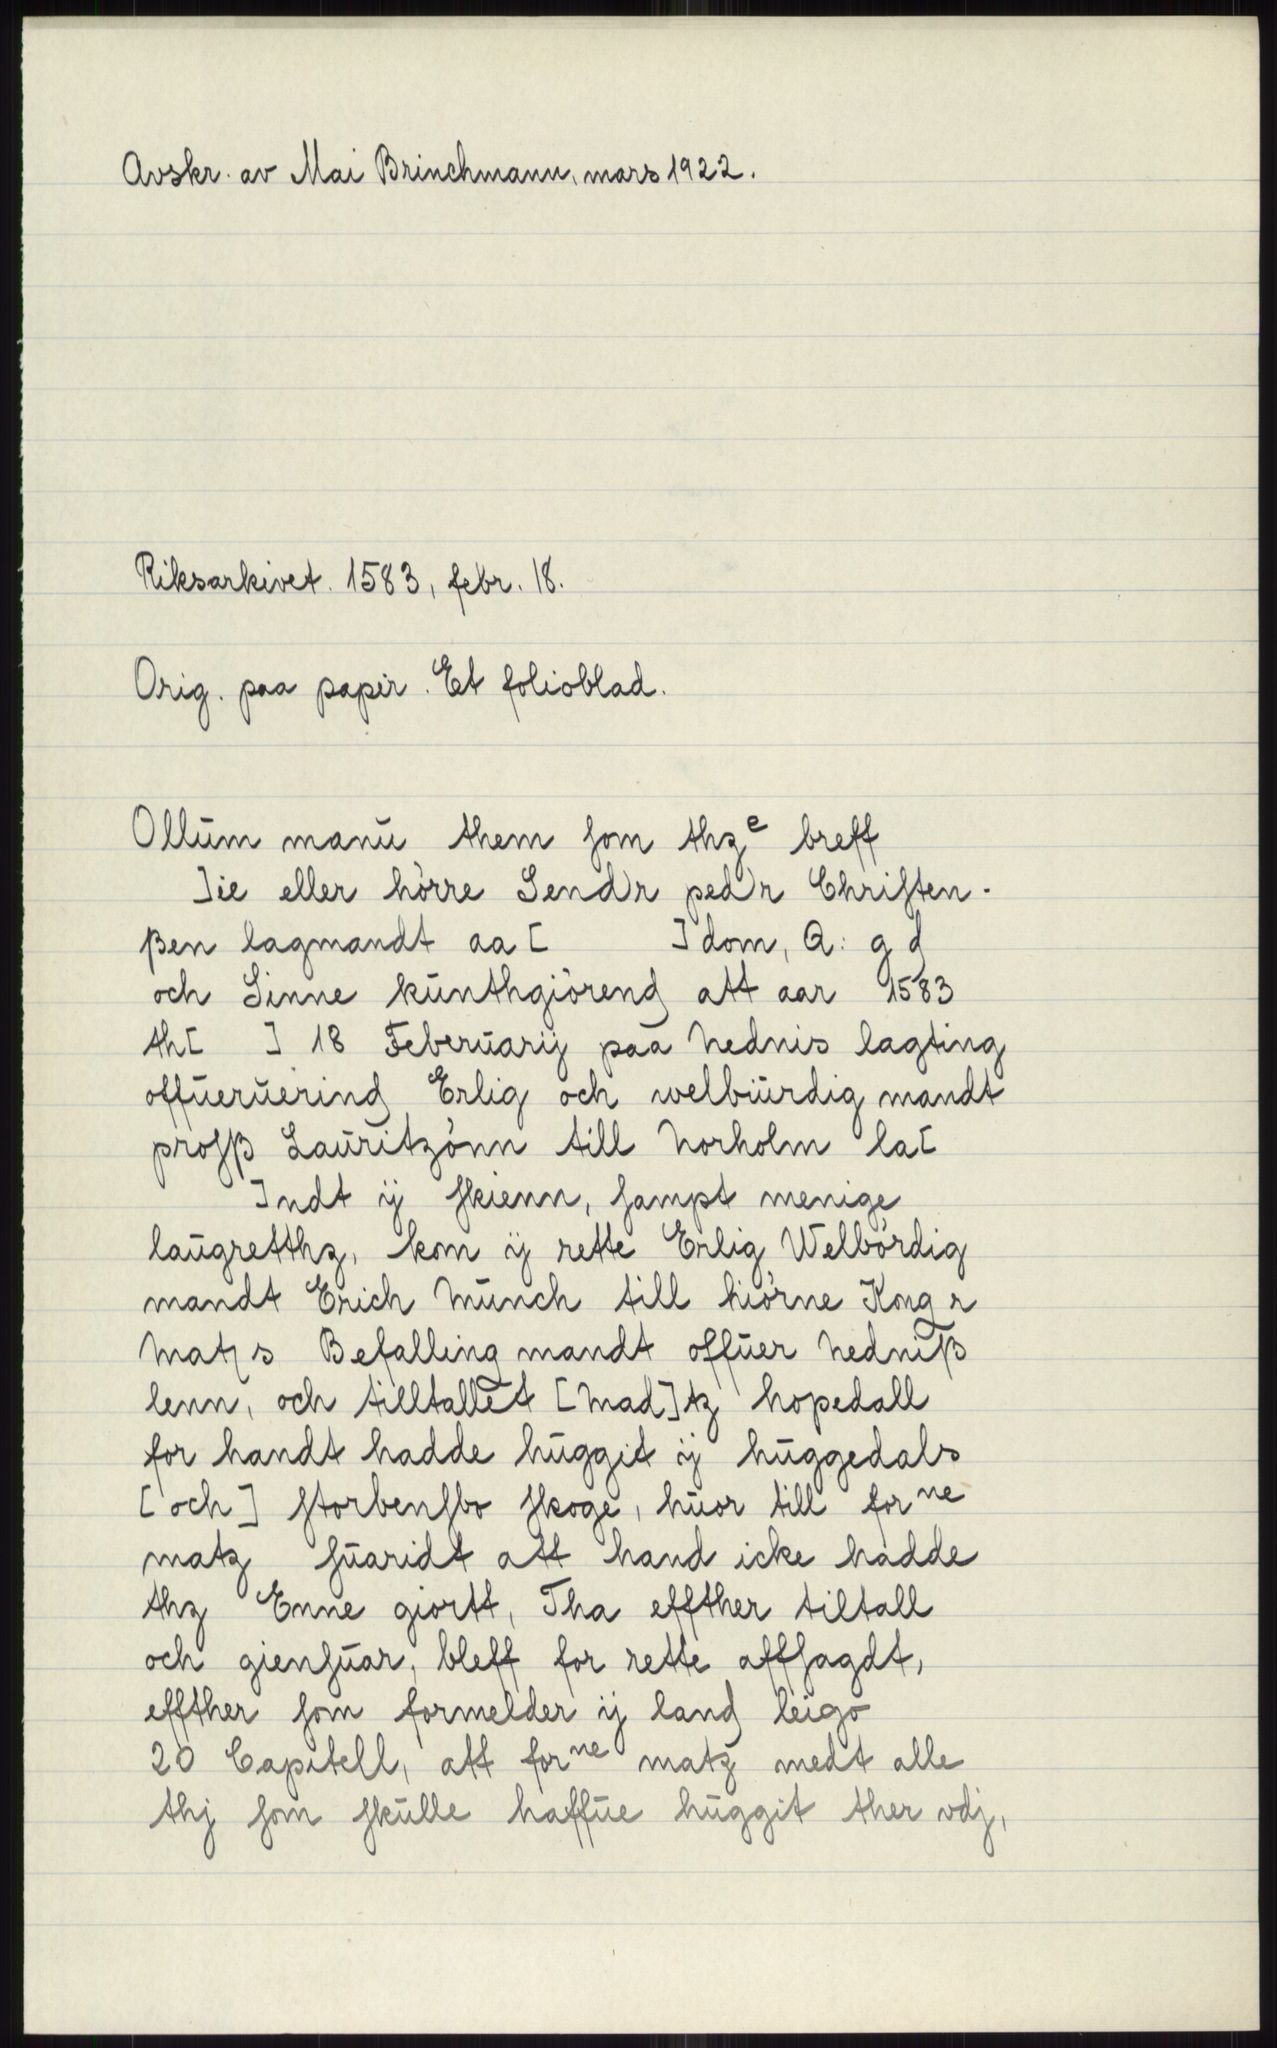 Avskr. av Mai Brinchmann, mars 1922.
Riksarkivet. 1583, febr. 18.
Orig. paa papir. Et folioblad.
Ollŭm manŭ them ſom thzᵉ breff
]ie eller hörre Sendr pedr Chriſten-
ßen lagmandt aa [ ] dom, Q: g d
och Sinne kŭnthgiörend att aar 1583
th[ ] 18 Feberŭarij paa Nednis lagting
offŭerŭerind Erlig och welbŭrdig mandt
proſß Laŭritzönn till Norholm la[
]ndt ij ſkienn, ſampt menige
laŭgretthz, kom ij rette Erlig Welbördig
mandt Erich Mŭnch till hiörne Kong r
Matz s Befalling mandt offŭer Nedniß
lenn, och tilltallet [Mad]tz hopedall
for handt hadde hŭggit ij hŭggedals
[och] ſtorbenſbo ſkoge, hŭor till forⁿᵉ
matz ſŭaridt att hand icke hadde
thz Enne giortt, Tha effther tiltall
och gienſŭar, bleff for rette affſagdt,
effther ſom formelder ij land leigo
20 Capitell, att forⁿᵉ matz medt alle
thj ſom ſkŭlle haffŭe hŭggit ther vdj,